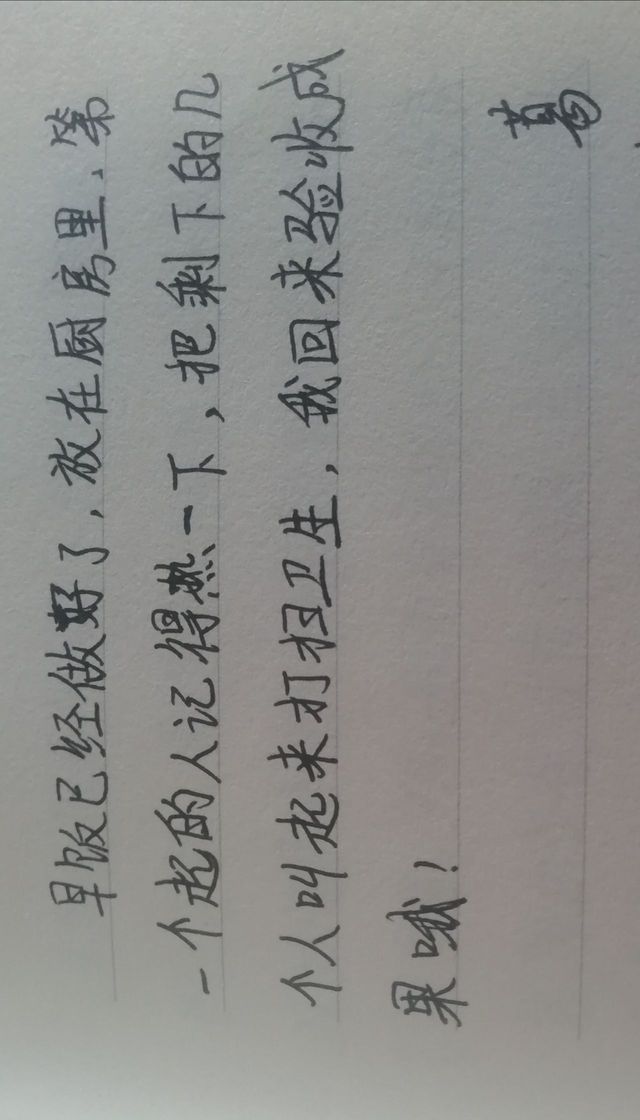 早饭已经做好了，放在厨房里、第
一个起的人记得热一下，把剩下的几
个人叫起来打扫卫生，我回来验收成
果哦！
葛